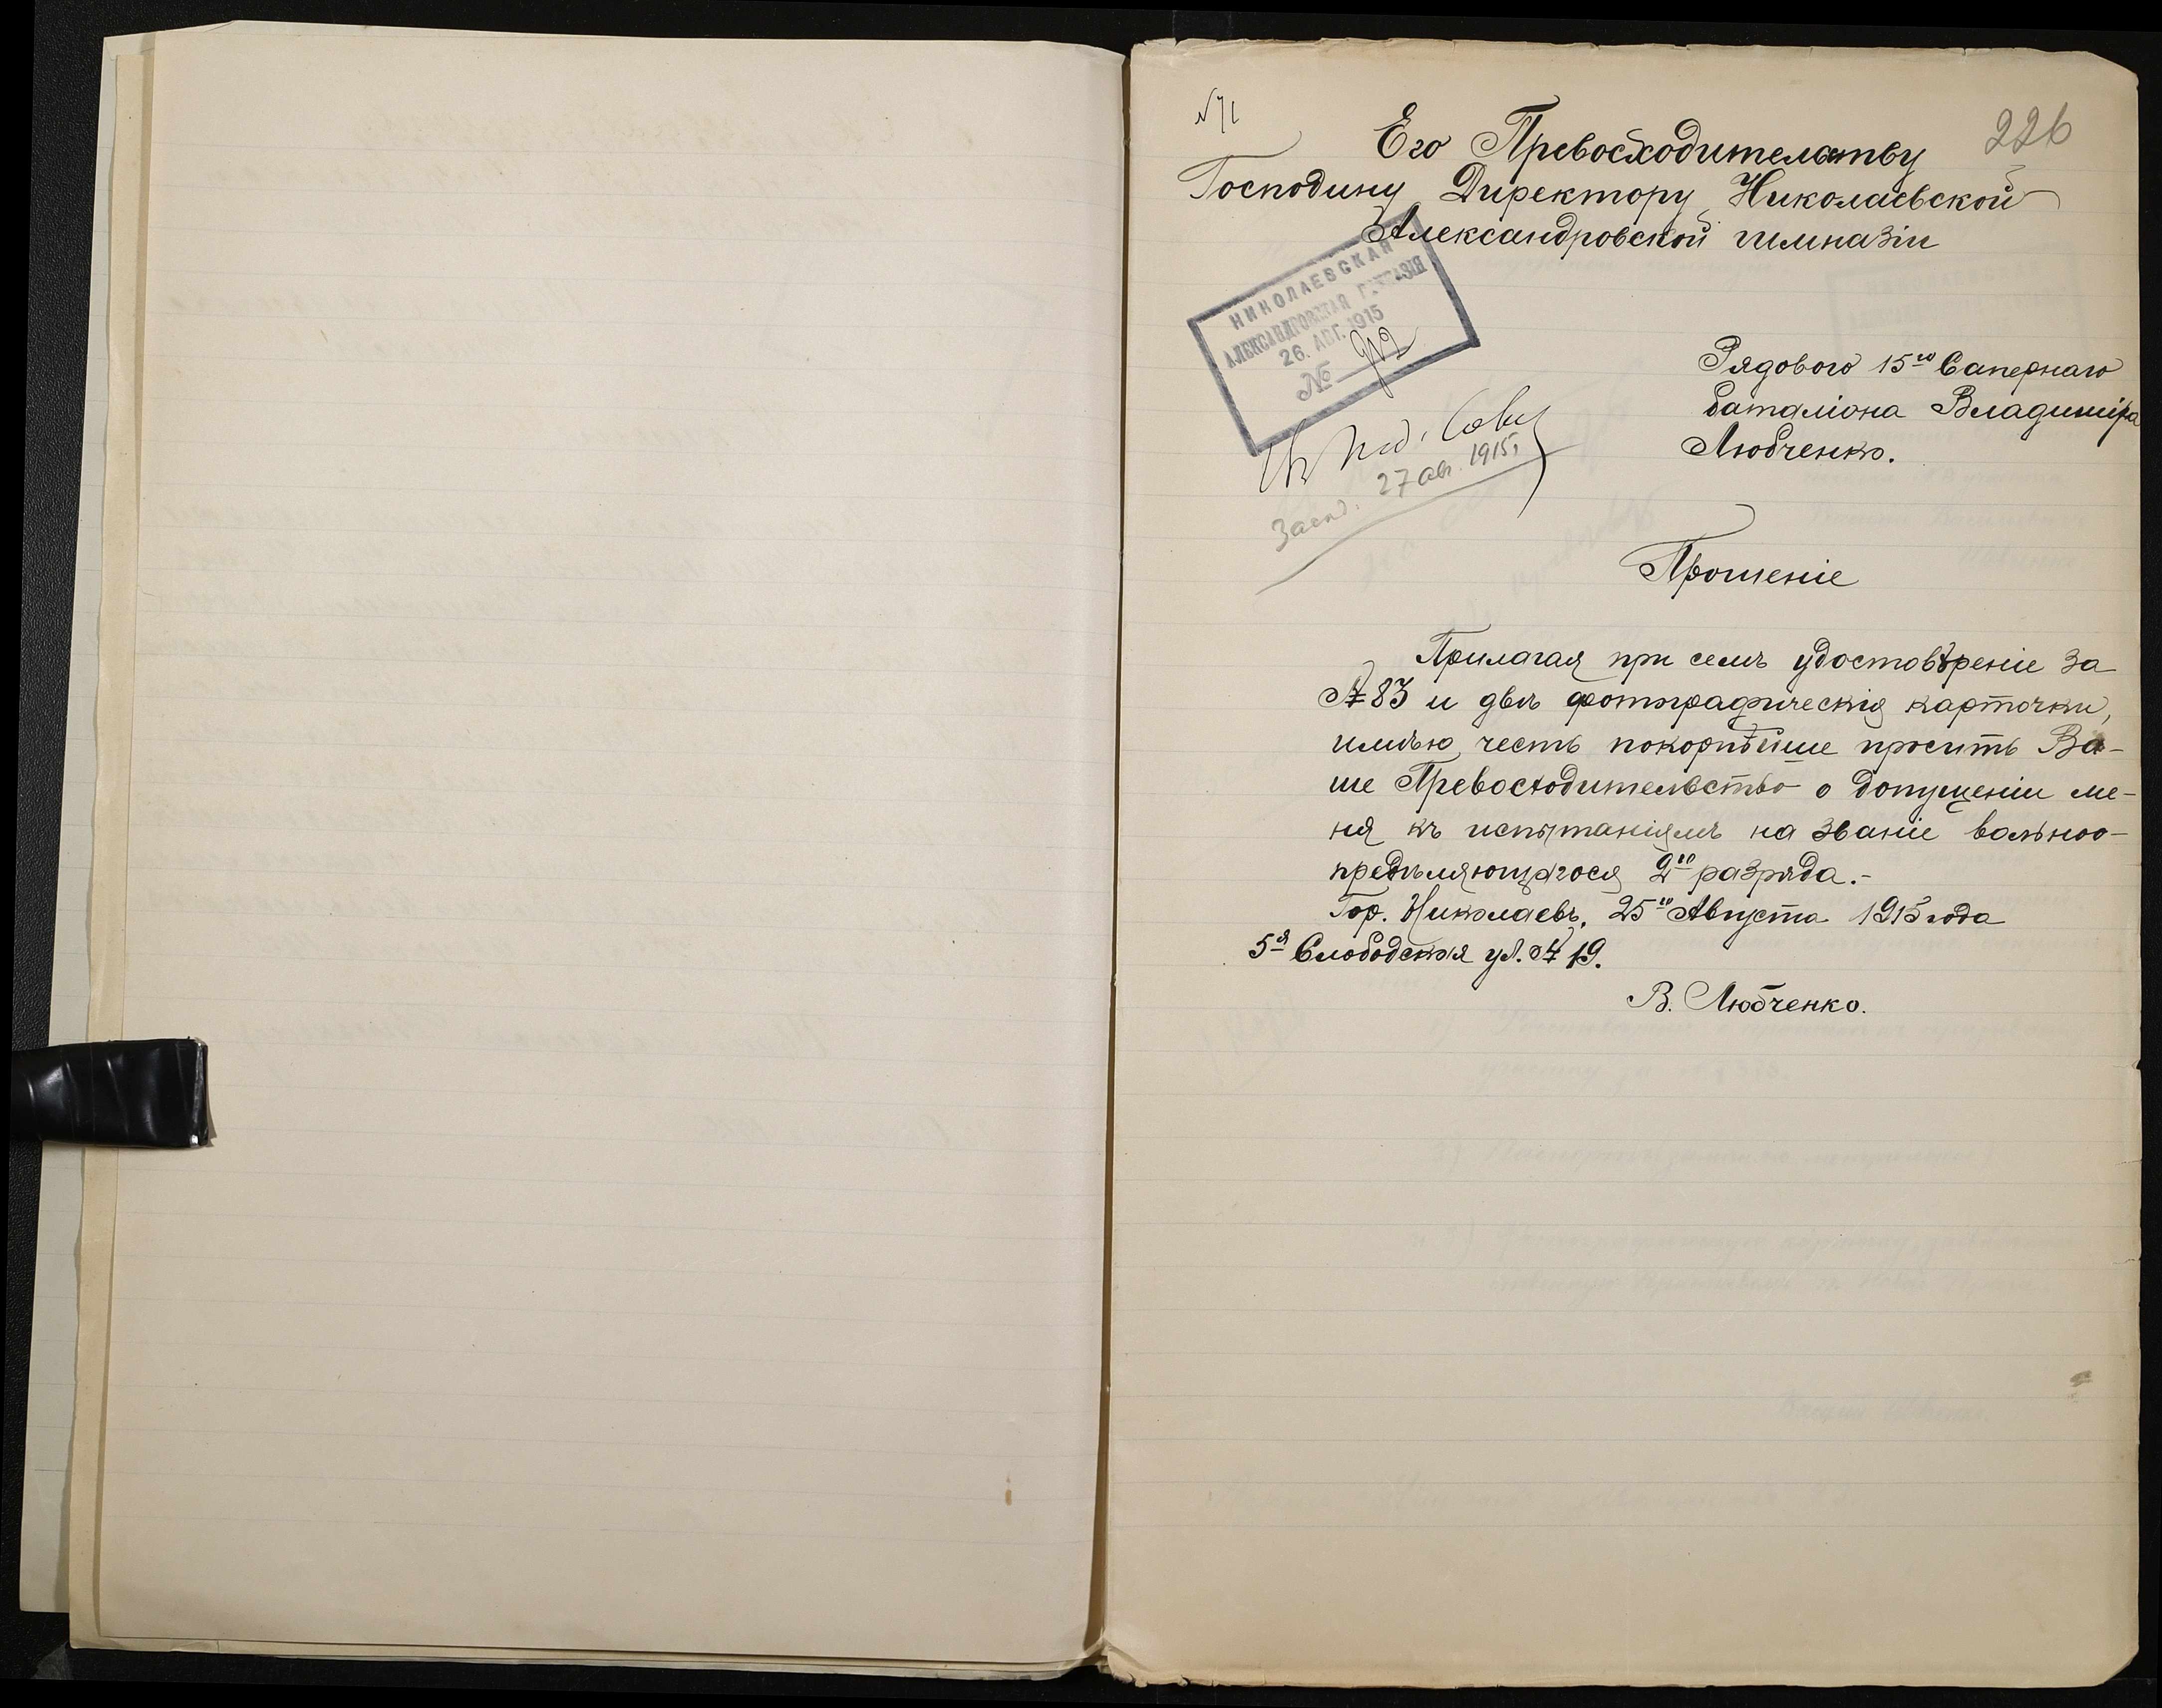 226
Его Превосходительству
Господину Директору Николаевской
Александровской гимназіи
НИКОЛАЕВСКАЯ
АЛЕКСАНДРОВСКАЯ ГИМНАЗІЯ
26. АВГ. 1915
№
Рядового 15го Сапернаго
баталіона Владиміра
Любченко.
27 авг. 1915,
Прошеніе
Прилагая при семъ удостовѣреніе за
№ 83 и двѣ фотографическія карточки,
имѣю честь покорнѣйше просить Ва-
ше Превосходительство о допущеніи ме-
ня къ испытаніямъ на званіе вольноо-
предѣляющагося 2го разряда.-
Гор. Николаевъ, 25го Августа 1915 года
5я Слободская ул. № 19.
В. Любченко.